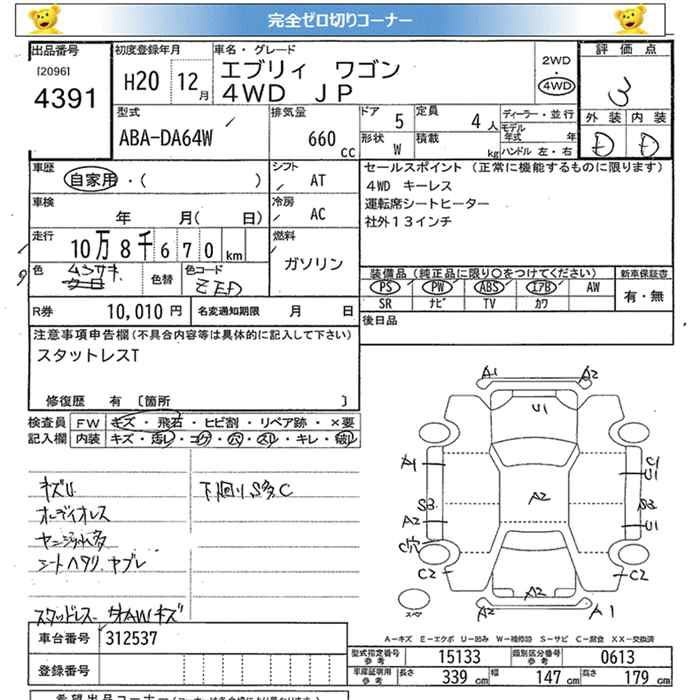 完全ゼロ切りコーナー
出品番号
[2096]
4391
初度登録年月
H20 12月
車名・グレード
エブリィ ワゴン
4WD JP
2WD
・
4WD
評価点
3
外装 内装
D D
型式
ABA-DA64W
排気量
660 cc
ドア 5
形状 W
定員 4人
積載 kg
ディーラー・並行
モデル年式 年
ハンドル 左・右
車歴
自家用・( )
シフト
AT
車検
年 月( 日)
冷房
AC
走行
10万8千670km
燃料
ガソリン
色
ムラサキ
クロ
色替
色コード
ZED
R券 10,010円
名変通知期限 月 日
セールスポイント(正常に機能するものに限ります)
4WD キーレス
運転席シートヒーター
社外13インチ
装備品(純正品に限り○をつけてください)
新車保証書
PS PW ABS エアB AW
SR ナビ TV カワ
有・無
後日品
注意事項申告欄(不具合内容等は具体的に記入して下さい)
スタットレスT
修復歴 有 〔箇所 〕
検査員
記入欄
FW キズ・飛石・ヒビ割・リペア跡・×要
内装 キズ・汚レ・コゲ・穴・スレ・キレ・破レ
キズU
オーディオレス
ヤニ汚れ多
シートヘタリ、ヤブレ
下廻りS多C
A1 A2
U1
A1 C1
U1
A2
S3 S3
A2 U1
C穴
C2 C2
A2
A2 A1
スペア
A－キズ E－エクボ U－凹み W－補修跡 S－サビ C－腐食 XX－交換済
車台番号 312537
登録番号
型式指定番号 参考 15133
類別区分番号 参考 0613
車庫証明用 参考
長さ 339 cm
幅 147 cm
高さ 179 cm
希望出品コーナー